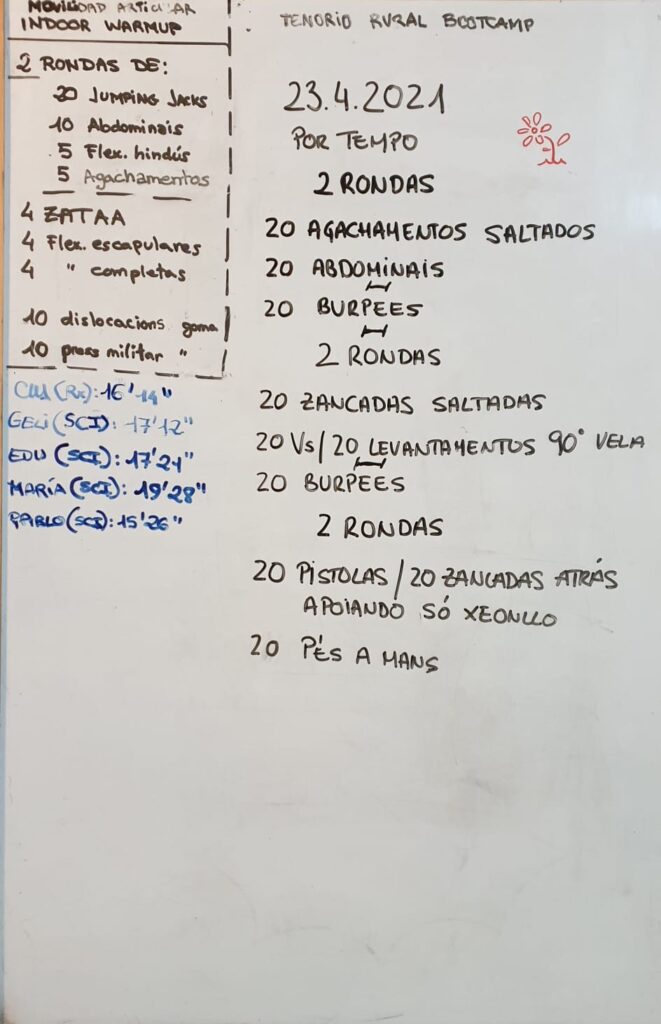 MOVILIDAD ARTICULAR
INDOOR WARMUP
2 RONDAS DE:
20 JUMPING JACKS
10 Abdominais
5 Flex. hindús
5 Agachamentos
4 ZATAA
4 Flex. escapulares
4 " completas
10 dislocacions goma
10 press militar "
(Rx): 16'14"
GELI (SCI): 17'12"
EDU (SCI): 17'21"
MARÍA (SCI): 19'28"
PABLO (SCI): 15'26"
TENORIO RURAL BOOTCAMP
23.4.2021
POR TEMPO
2 RONDAS
20 AGACHAMENTOS SALTADOS
20 ABDOMINAIS
20 BURPEES
2 RONDAS
20 ZANCADAS SALTADAS
20 Vs/20 LEVANTAMENTOS 90° VELA
20 BURPEES
2 RONDAS
20 PISTOLAS/20 ZANCADAS ATRÁS
APOIANDO SÓ XEONLLO
20 PÉS A MANS